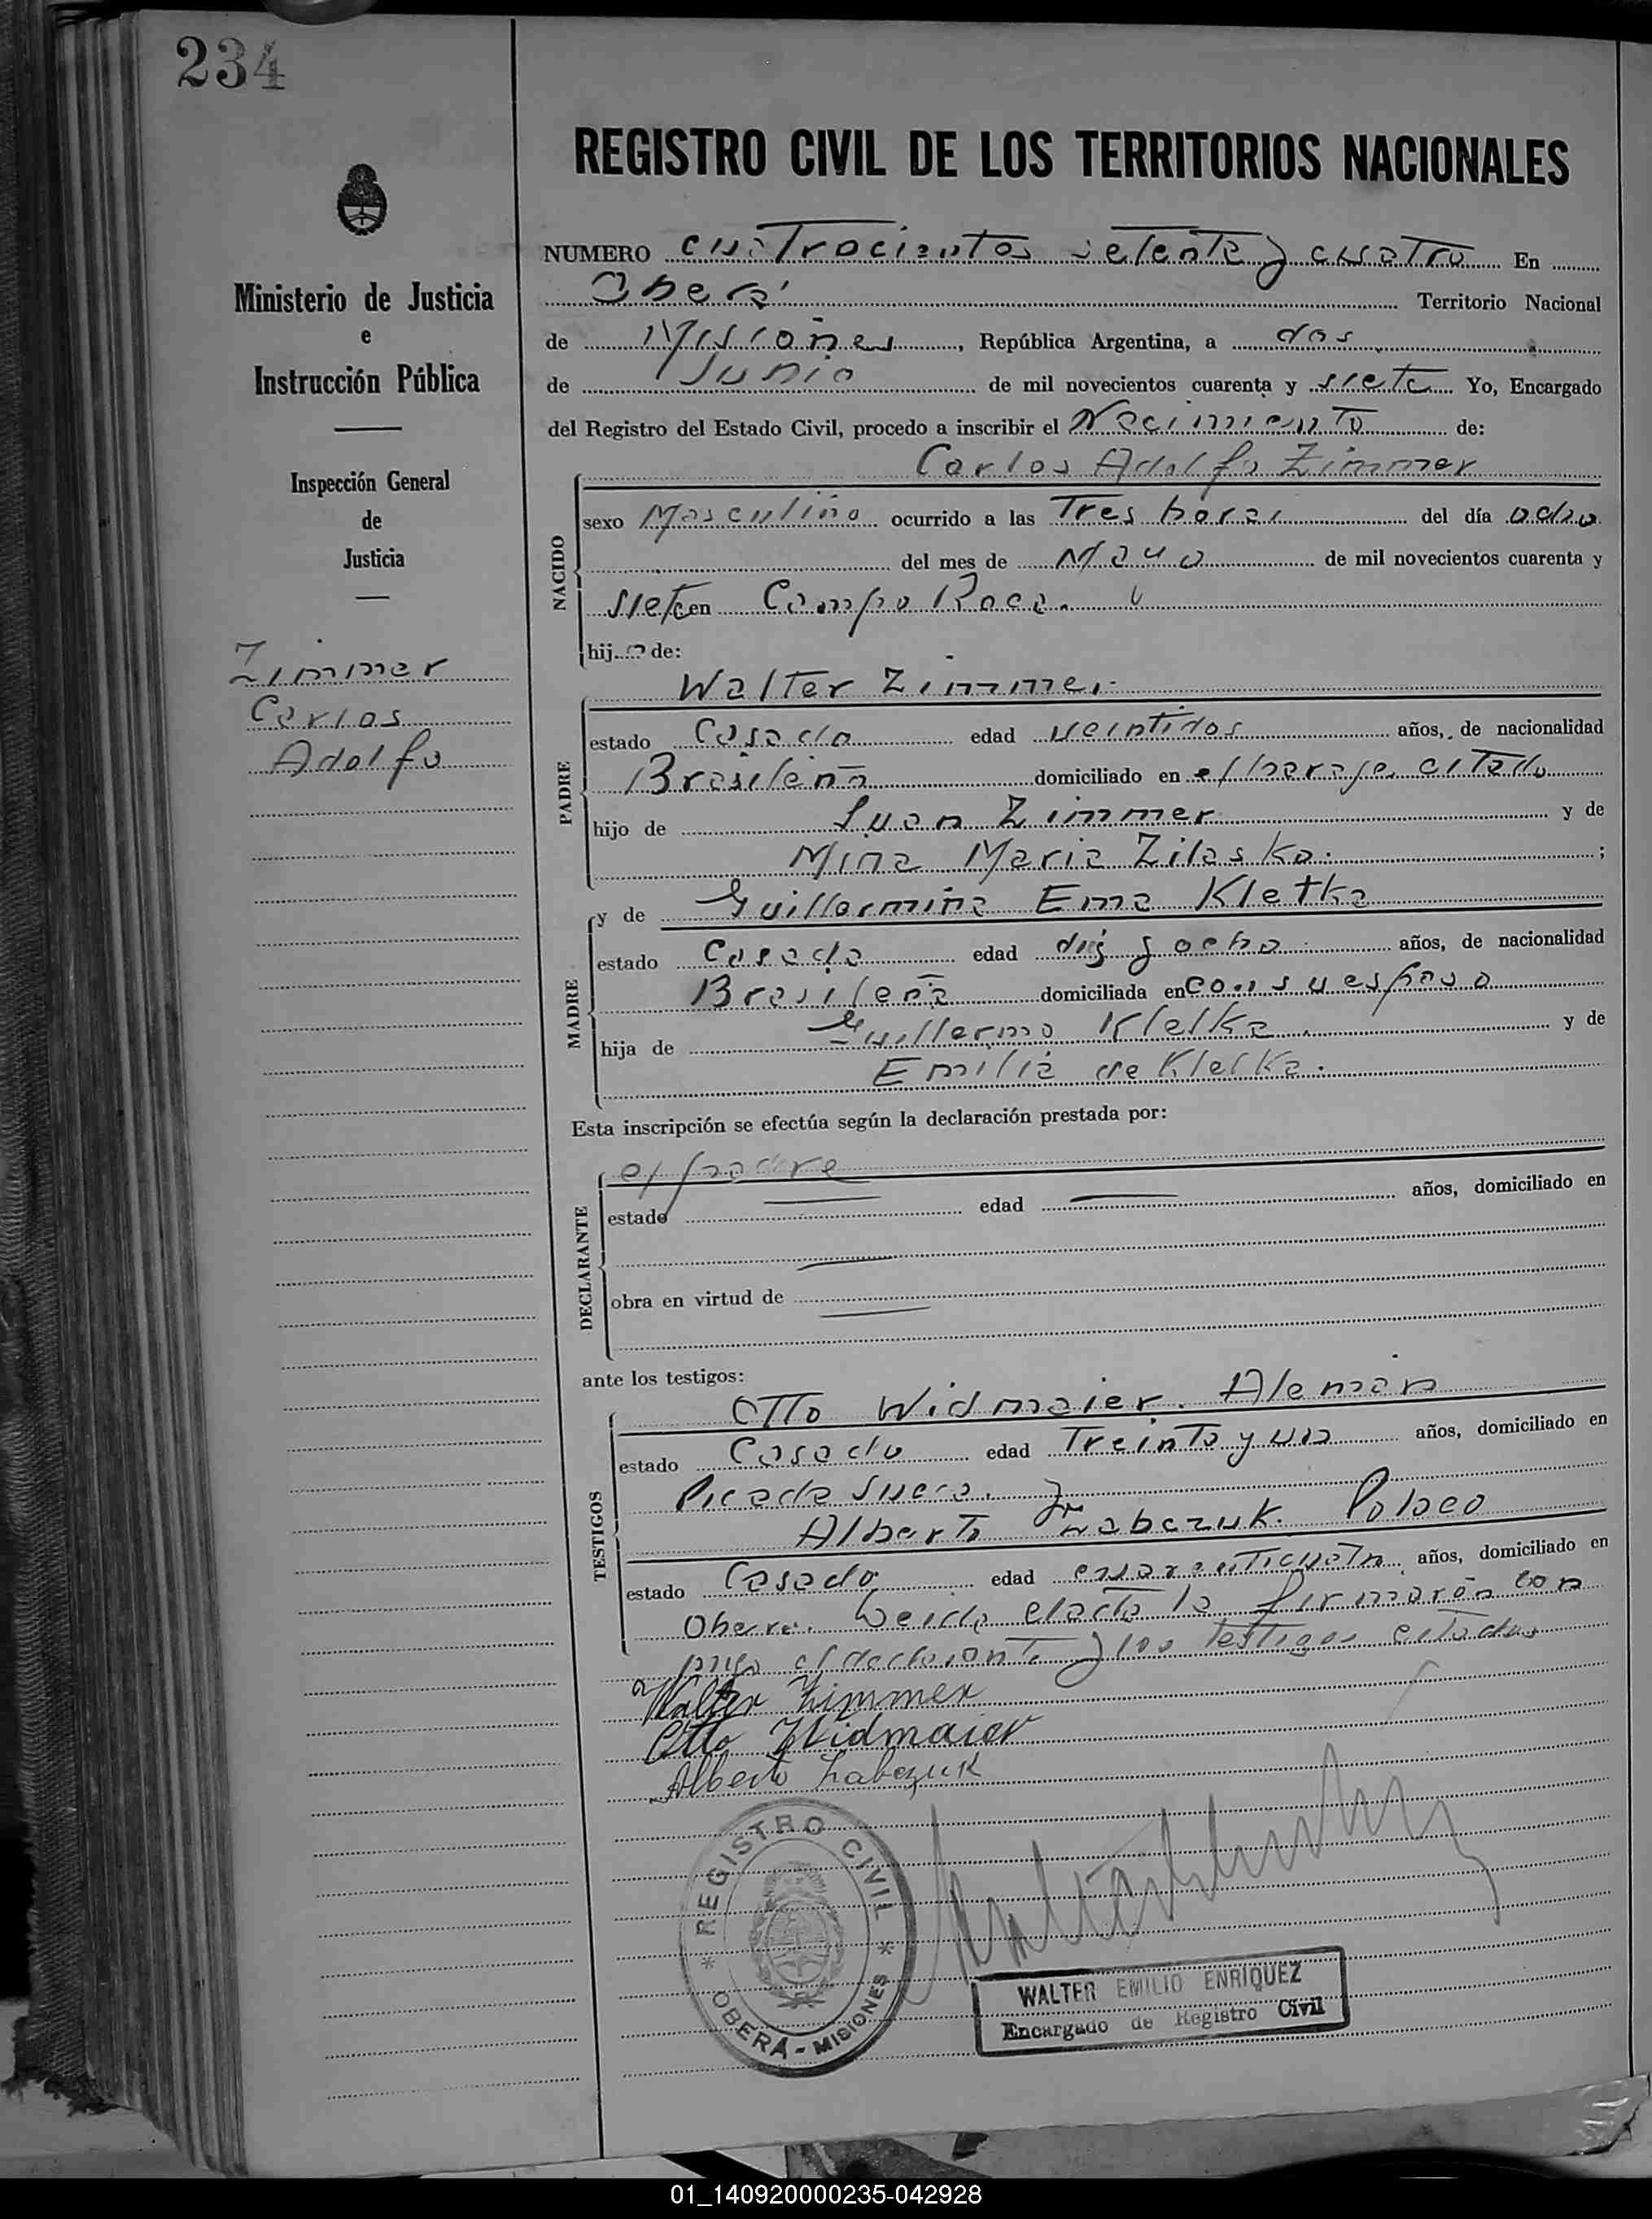 234
REGISTRO CIVIL DE LOS TERRITORIOS NACIONALES
Ministerio de Justicia
e
Instrucción Pública
Inspección General
de
Justicia
Zimmer
Carlos
Adolfo
NUMERO cuatrocientos setenta y cuatro En
Oberá Territorio Nacional
de Misiones, República Argentina, a dos
de Junio de mil novecientos cuarenta y siete Yo, Encargado
del Registro del Estado Civil, procedo a inscribir el Nacimiento de:
Carlos Adolfo Zimmer
NACIDO
sexo Masculino ocurrido a las Tres horas del día ocho
del mes de Mayo de mil novecientos cuarenta y
siete en Campo Roca.
hijo de:
PADRE
Walter Zimmer
estado Casado edad veintidos años, de nacionalidad
Brasileña domiciliado en el paraje citado
hijo de Juan Zimmer y de
Mina Maria Zilaska. ;
MADRE
y de Guillermina Ema Kletka
estado Casada edad diez y ocho años, de nacionalidad
Brasileña domiciliada en con su esposo
hija de Guillermo Kletka y de
Emilia de Kletka.
Esta inscripción se efectúa según la declaración prestada por:
DECLARANTE
el padre
estado edad años, domiciliado en
obra en virtud de
ante los testigos:
TESTIGOS
Otto Widmaier. Aleman
estado Casado edad Treinta y un años, domiciliado en
Picada Sueca.
Alberto Zabczuk. Polaco
estado Casado edad cuarenticuatro años, domiciliado en
Obera. Leida el acta la firmaron con
migo el declarante y los testigos citados
Walter Zimmer
Otto Widmaier
Alberto Zabczuk
* REGISTRO CIVIL *
OBERÁ - MISIONES
WALTER EMILIO ENRIQUEZ
Encargado de Registro Civil
01_140920000235-042928